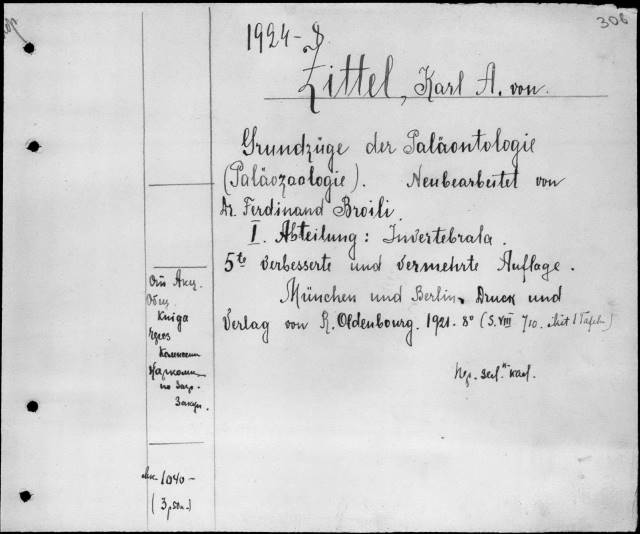 306
1924-8
Zittel, Karl A. von.
Grundzüge der Paläontologie
(Paläozoologie). Neubearbeitet von
Dr. Ferdinand Broili.
I. Abteilung: Invertebrata.
5te verbesserte und vermehrte Auflage.
München und Berlin. Druck und
Verlag von R. Oldenbourg. 1921. 8° (S. VIII 710. Mit 1 Tafel.)
Акц.
Общ.
Книга
через
по Загр.
Закуп.
1040-